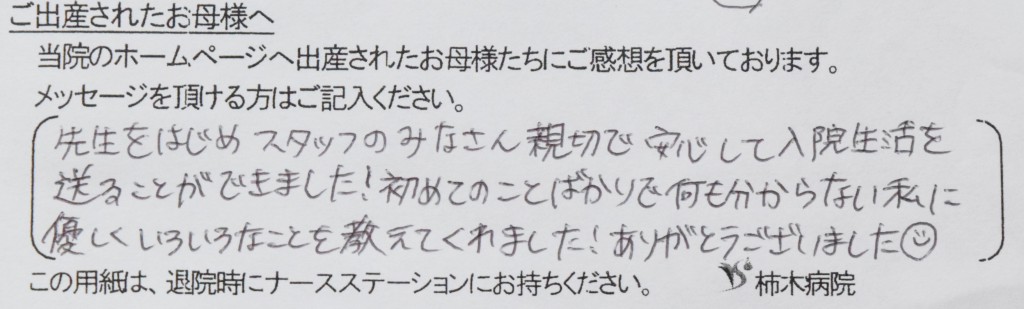 ご出産されたお母様へ
当院のホームページへ出産されたお母様たちにご感想を頂いております。
メッセージを頂ける方はご記入ください。
先生をはじめスタッフのみなさん親切で安心して入院生活を
送ることができました!初めてのことばかりで何も分からない私に
優しくいろいろなことを教えてくれました!ありがとうございました☺
この用紙は、退院時にナースステーションにお持ちください。 柿木病院